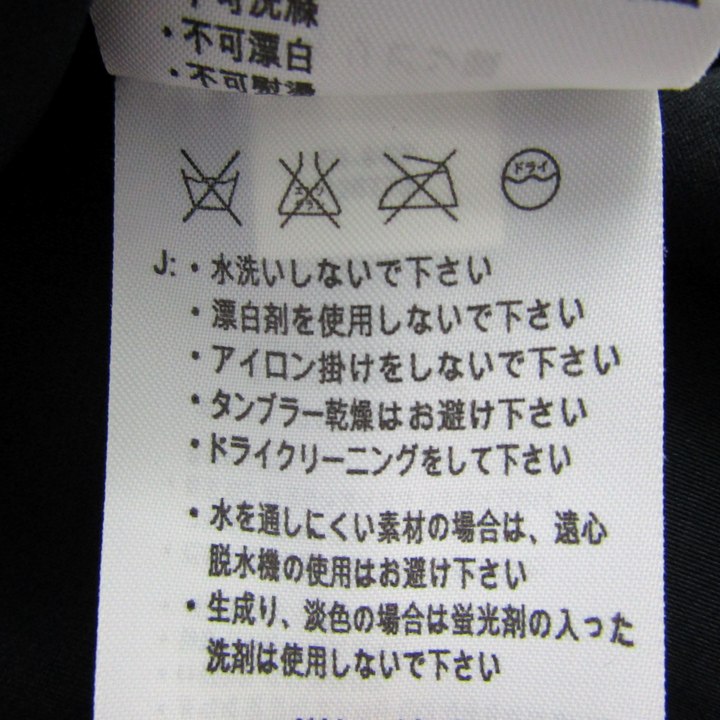 ・不可漂白
・不可熨燙
エンソ
サラシ
ドライ
J:・水洗いしないで下さい
・漂白剤を使用しないで下さい
・アイロン掛けをしないで下さい
・タンブラー乾燥はお避け下さい
・ドライクリーニングをして下さい
・水を通しにくい素材の場合は、遠心
脱水機の使用はお避け下さい
・生成り、淡色の場合は蛍光剤の入った
洗剤は使用しないで下さい